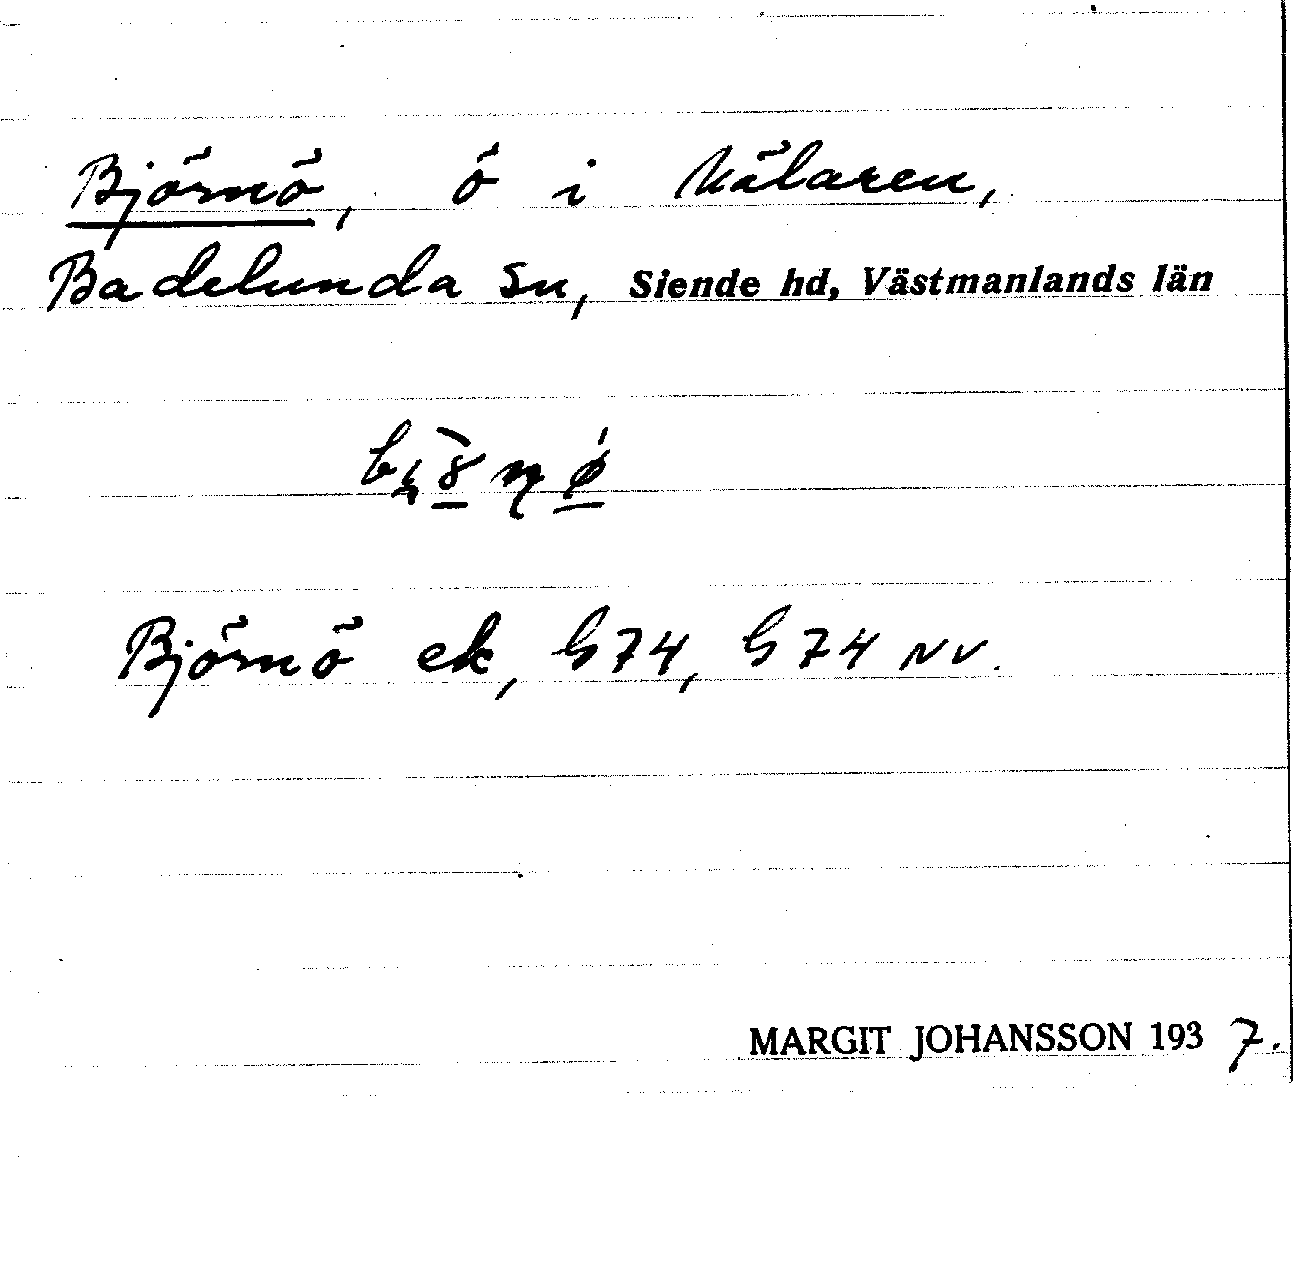 Björnö, ö i Mälaren,
Badelunda sn, Siende hd, Västmanlands län
Björnö ek, G 74, G 74 NV.
MARGIT JOHANSSON 1937.